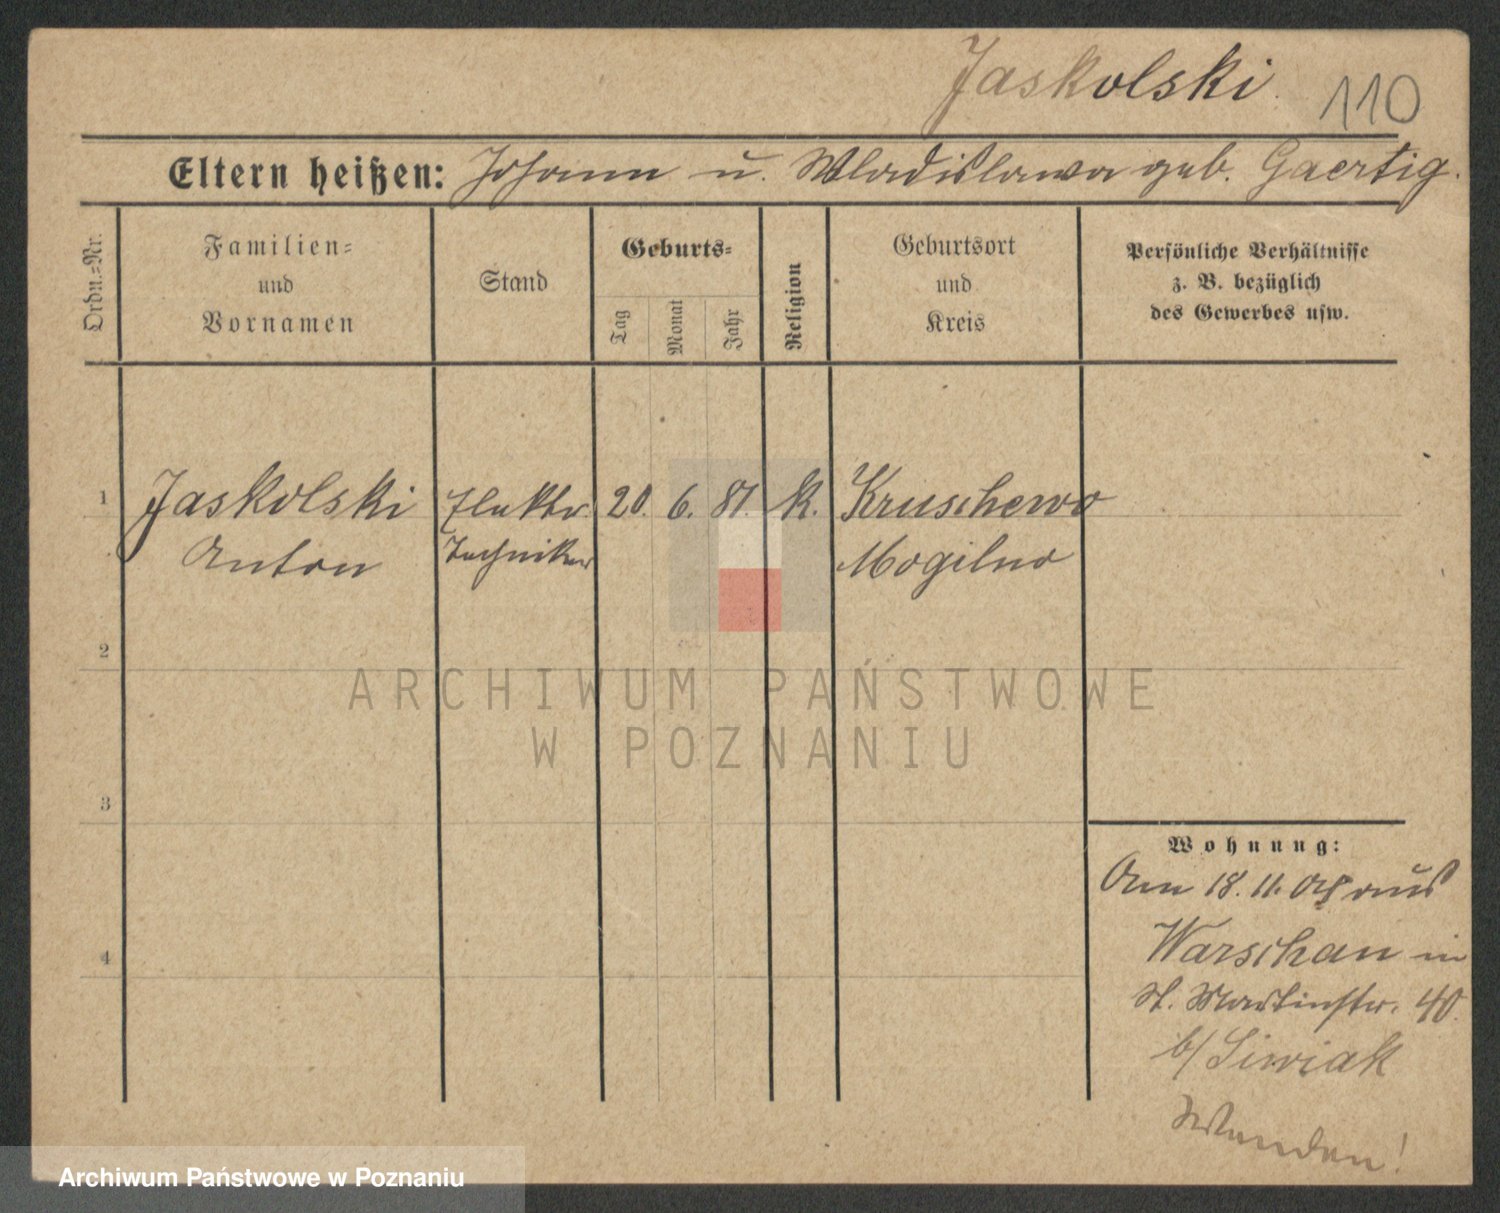 Jaskolski
110
Eltern heißen: Johann u. Wladislawa geb. Gaertig.
Ordn.=Nr.
Familien=
und
Vornamen
Stand
Geburts=
Tag
Monat
Jahr
Religion
Geburtsort
und
Kreis
Persönliche Verhältnisse
z. B. bezüglich
des Gewerbes usw.
1
Jaskolski
Anton
Elektr.
Techniker
20. 6. 81. k.
Kruschewo
Mogilno
2
3
4
Wohnung:
Am 18. 11. aus
Warschau in
St. Martinstr. 40.
b/ Siwiak
Wenden!
ARCHIWUM PAŃSTWOWE
W POZNANIU
Archiwum Państwowe w Poznaniu